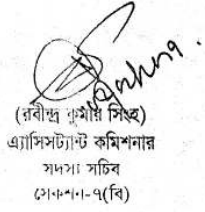 (রবীন্দ্র কুমার সিংহ)
এ্যাসিসট্যান্ট কমিশনার
সদস্য সচিব
সেকশন-৭(বি)